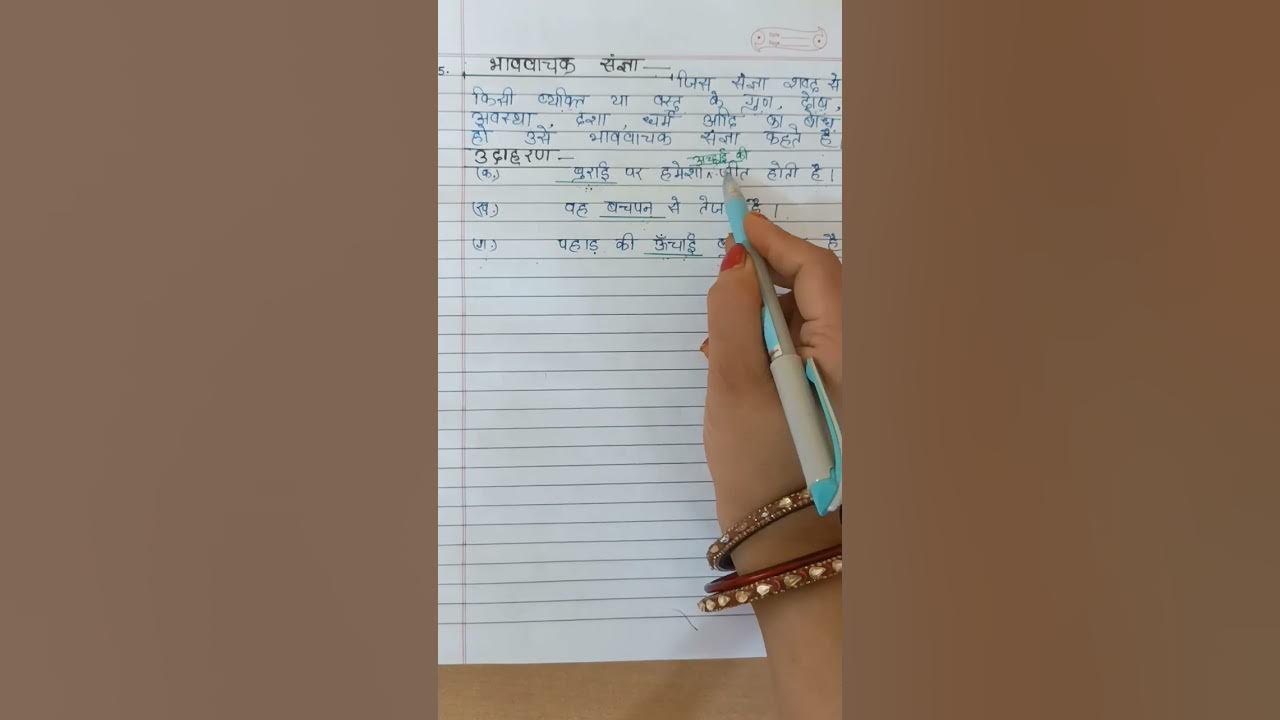 5. भाववाचक संज्ञा —
जिस संज्ञा शब्द से
किसी व्यक्ति या वस्तु के गुण, दोष,
अवस्था, दशा, धर्म आदि का बोध
हो उसे भाववाचक संज्ञा कहते हैं।
उदाहरण —
अच्छाई की
(क.) बुराई पर हमेशा ^ जीत होती है।
(ख.) वह बचपन से तेज है।
(ग.) पहाड़ की ऊँचाई है